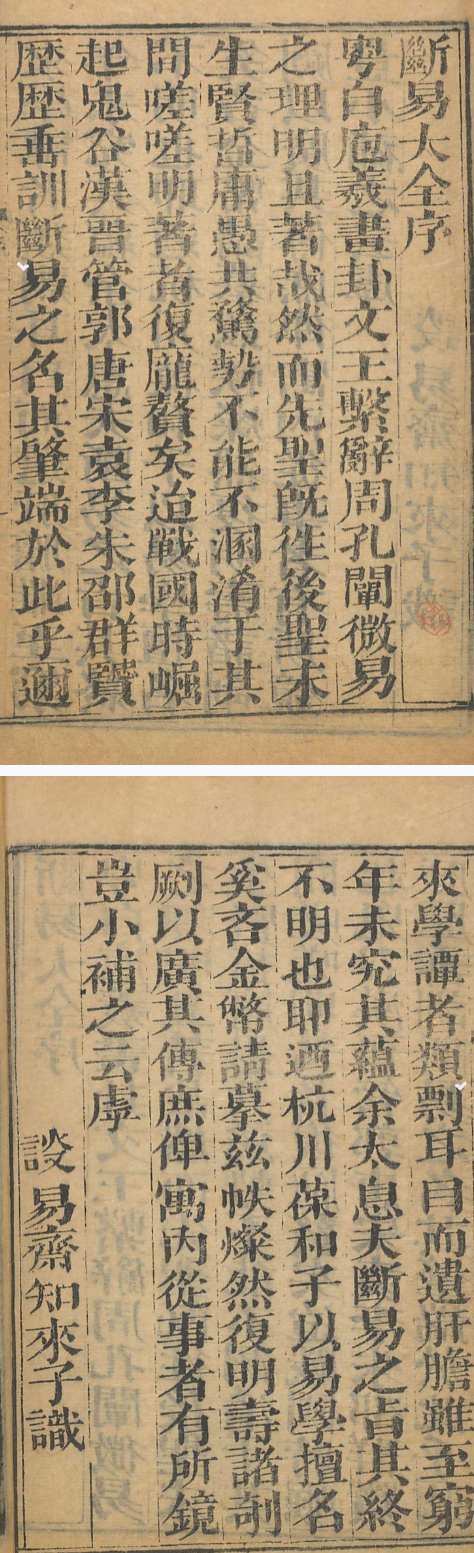 斷易大全序
粵自庖羲畫卦文王繫辭周孔闡微易
之理明且著哉然而先聖旣徃後聖未
生賢哲庸愚共騖勢不能不溷淆于其
問嗟嗟明著者復龐贅矣迨戰國時崛
起鬼谷漢晋管郭唐宋袁李朱邵群賢
歴歴垂訓斷易之名其肇端於此乎邇
來學譚者類剽耳目而遺肝膽雖至窮
年未究其蘊余太息夫斷易之旨其終
不明也耶迺杭川葆和子以易學擅名
奚吝金幣請摹茲帙燦然復明壽諸剞
劂以廣其傳庶俾寓內從事者有所鏡
豈小補之云虖
談易齋知來子識